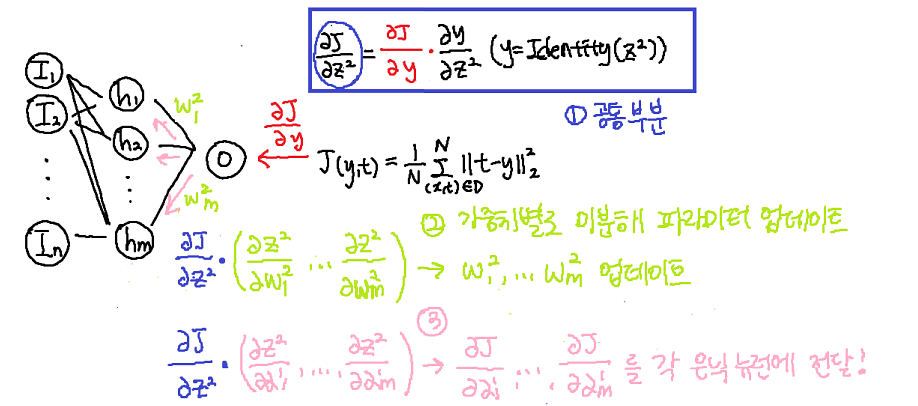 ∂J/∂z² = ∂J/∂y · ∂y/∂z² (y=Identity(z²))
① 공통부분
I₁
I₂
⋮
Iₙ
h₁
h₂
⋮
hₘ
w₁²
wₘ²
O
∂J/∂y
J(y,t) = 1/N Σ^N_(x,t)∈D ||t-y||₂²
② 가중치별로 미분해 파라미터 업데이트
∂J/∂z² · (∂z²/∂w₁² ... ∂z²/∂wₘ²) → w₁², ... wₘ² 업데이트
③
∂J/∂z² · (∂z²/∂a₁¹, ..., ∂z²/∂aₘ¹) → ∂J/∂a₁¹ ..., ∂J/∂aₘ¹ 를 각 은닉 뉴런에 전달!